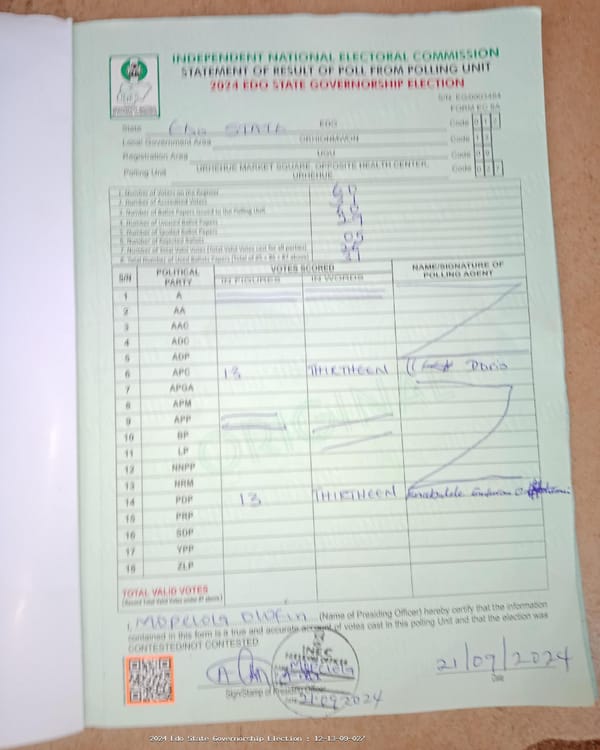 INDEPENDENT NATIONAL ELECTORAL COMMISSION
STATEMENT OF RESULT OF POLL FROM POLLING UNIT
2024 EDO STATE GOVERNORSHIP ELECTION
FORM EC 8A
State Edo STATE EDO Code
Local Government Area ORHIONMWON Code
Registration Area UGU Code
Polling Unit URHEHUE MARKET SQUARE, OPPOSITE HEALTH CENTER, URHEHUE Code
1. Number of Voters on the Register
2. Number of Accredited Voters
3. Number of Ballot Papers Issued to the Polling Unit
4. Number of Unused Ballot Papers
5. Number of Spoiled Ballot Papers
6. Number of Rejected Ballots
7. Number of Total Valid Votes (Total Valid Votes cast for all parties)
8. Total Number of Used Ballot Papers (Total of #5 + #6 + #7 above)
S/N POLITICAL PARTY VOTES SCORED NAME/SIGNATURE OF POLLING AGENT
IN FIGURES IN WORDS
1 A
2 AA
3 AAC
4 ADC
5 ADP
6 APC 13 THIRTHEEN
7 APGA
8 APM
9 APP
10 BP
11 LP
12 NNPP
13 NRM
14 PDP 13 THIRTHEEN
15 PRP
16 SDP
17 YPP
18 ZLP
ORIGINAL
TOTAL VALID VOTES
I, (Name of Presiding Officer) hereby certify that the information
contained in this form is a true and accurate account of votes cast in this polling Unit and that the election was
CONTESTED/NOT CONTESTED
INEC
21/09/2024
Sign/Stamp of Presiding Officer Date
21-09-2024
2024 Edo State Governorship Election : 12-13-09-027